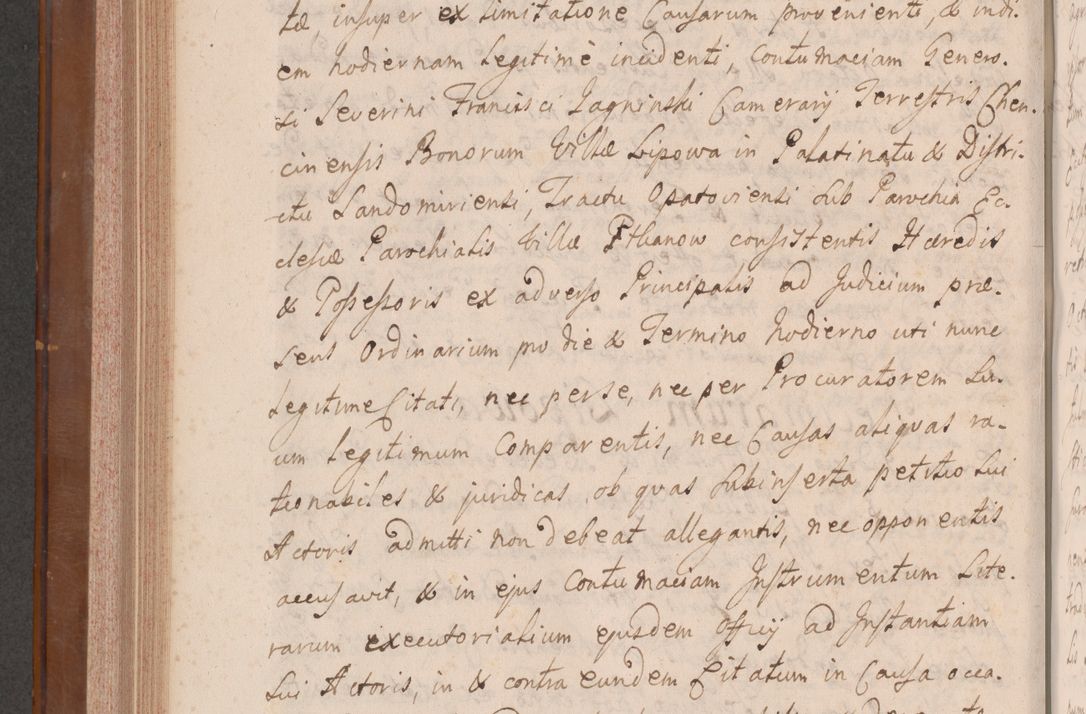 tæ, insuper ex limitatione Causarum provenienti, & indi-
em hodiernam Legitimè incidenti, Contumaciam Genero-
si Severini Francisci Jagninski Camerarij Terrestris Chen-
cinensis Bonorum Villæ Lipowa in Palatinatu & Distri-
ctu Sandomiriensi, Tractu Opatoviensi sub Parochia Ec-
clesiæ Parochialis Villæ Ptkanow consistentis Hæredis
& Possessoris ex adverso Principalis ad Judicium præ-
sens Ordinarium pro die & Termino hodierno uti nunc
Legitime Citati, nec per se, nec per Procuratorem Su-
um legitimum Comparentis, nec Causas aliqvas ra-
tionabiles & juridicas, ob qvas subinserta petitio Sui
Actoris admitti non debeat allegantis, nec opponentis
accusavit, & in ejus Contumaciam Instrumentum Lite-
rarum executorialium ejusdem Officij ad Instantiam
Sui Actoris, in & contra eundem Citatum in Causa occa-